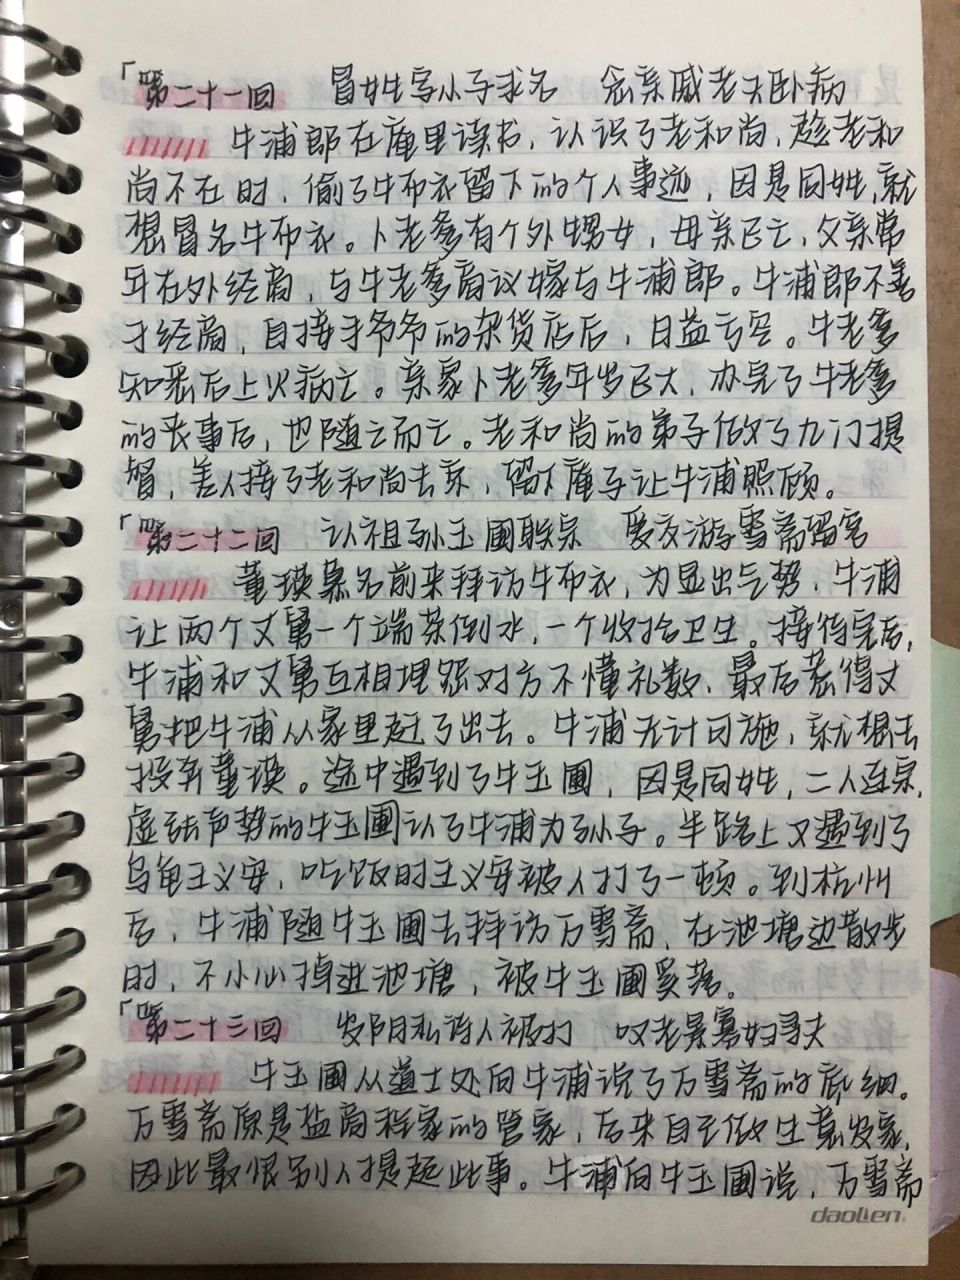 「第二十一回 冒姓字小子求名 念亲戚老夫卧病
牛浦郎在庵里读书,认识了老和尚,趁老和
尚不在时,偷了牛布衣留下的个人事迹,因是同姓,就
想冒名牛布衣。卜老爹有个外甥女,母亲已亡,父亲常
年在外经商,与牛老爹商议嫁与牛浦郎。牛浦郎不善
于经商,自接手爷爷的杂货店后,日益亏空。牛老爹
知悉后上火病亡。亲家卜老爹年岁已大,办完了牛老爹
的丧事后,也随之而亡。老和尚的弟子做了九门提
督,差人接了老和尚去京,留下庵子让牛浦照顾。
「第二十二回 认祖孙玉圃联宗 爱交游雪斋留客
董瑛慕名前来拜访牛布衣,为显出气势,牛浦
让两个丈舅一个端茶倒水,一个收拾卫生。接待完后,
牛浦和丈舅互相埋怨对方不懂礼数,最后惹得丈
舅把牛浦从家里赶了出去。牛浦无计可施,就想去
投奔董瑛。途中遇到了牛玉圃,因是同姓,二人连宗,
虚张声势的牛玉圃认了牛浦为孙子。半路上又遇到了
乌龟王义安,吃饭时王义安被人打了一顿。到杭州
后,牛浦随牛玉圃去拜访万雪斋,在池塘边散步
时,不小心掉进池塘,被牛玉圃奚落。
「第二十三回 发阴私诗人被打 叹老景寡妇寻夫
牛玉圃从道士处向牛浦说了万雪斋的底细。
万雪斋原是盐商程家的管家,后来自主做生意发家,
因此最恨别人提起此事。牛浦向牛玉圃说,万雪斋
daolien